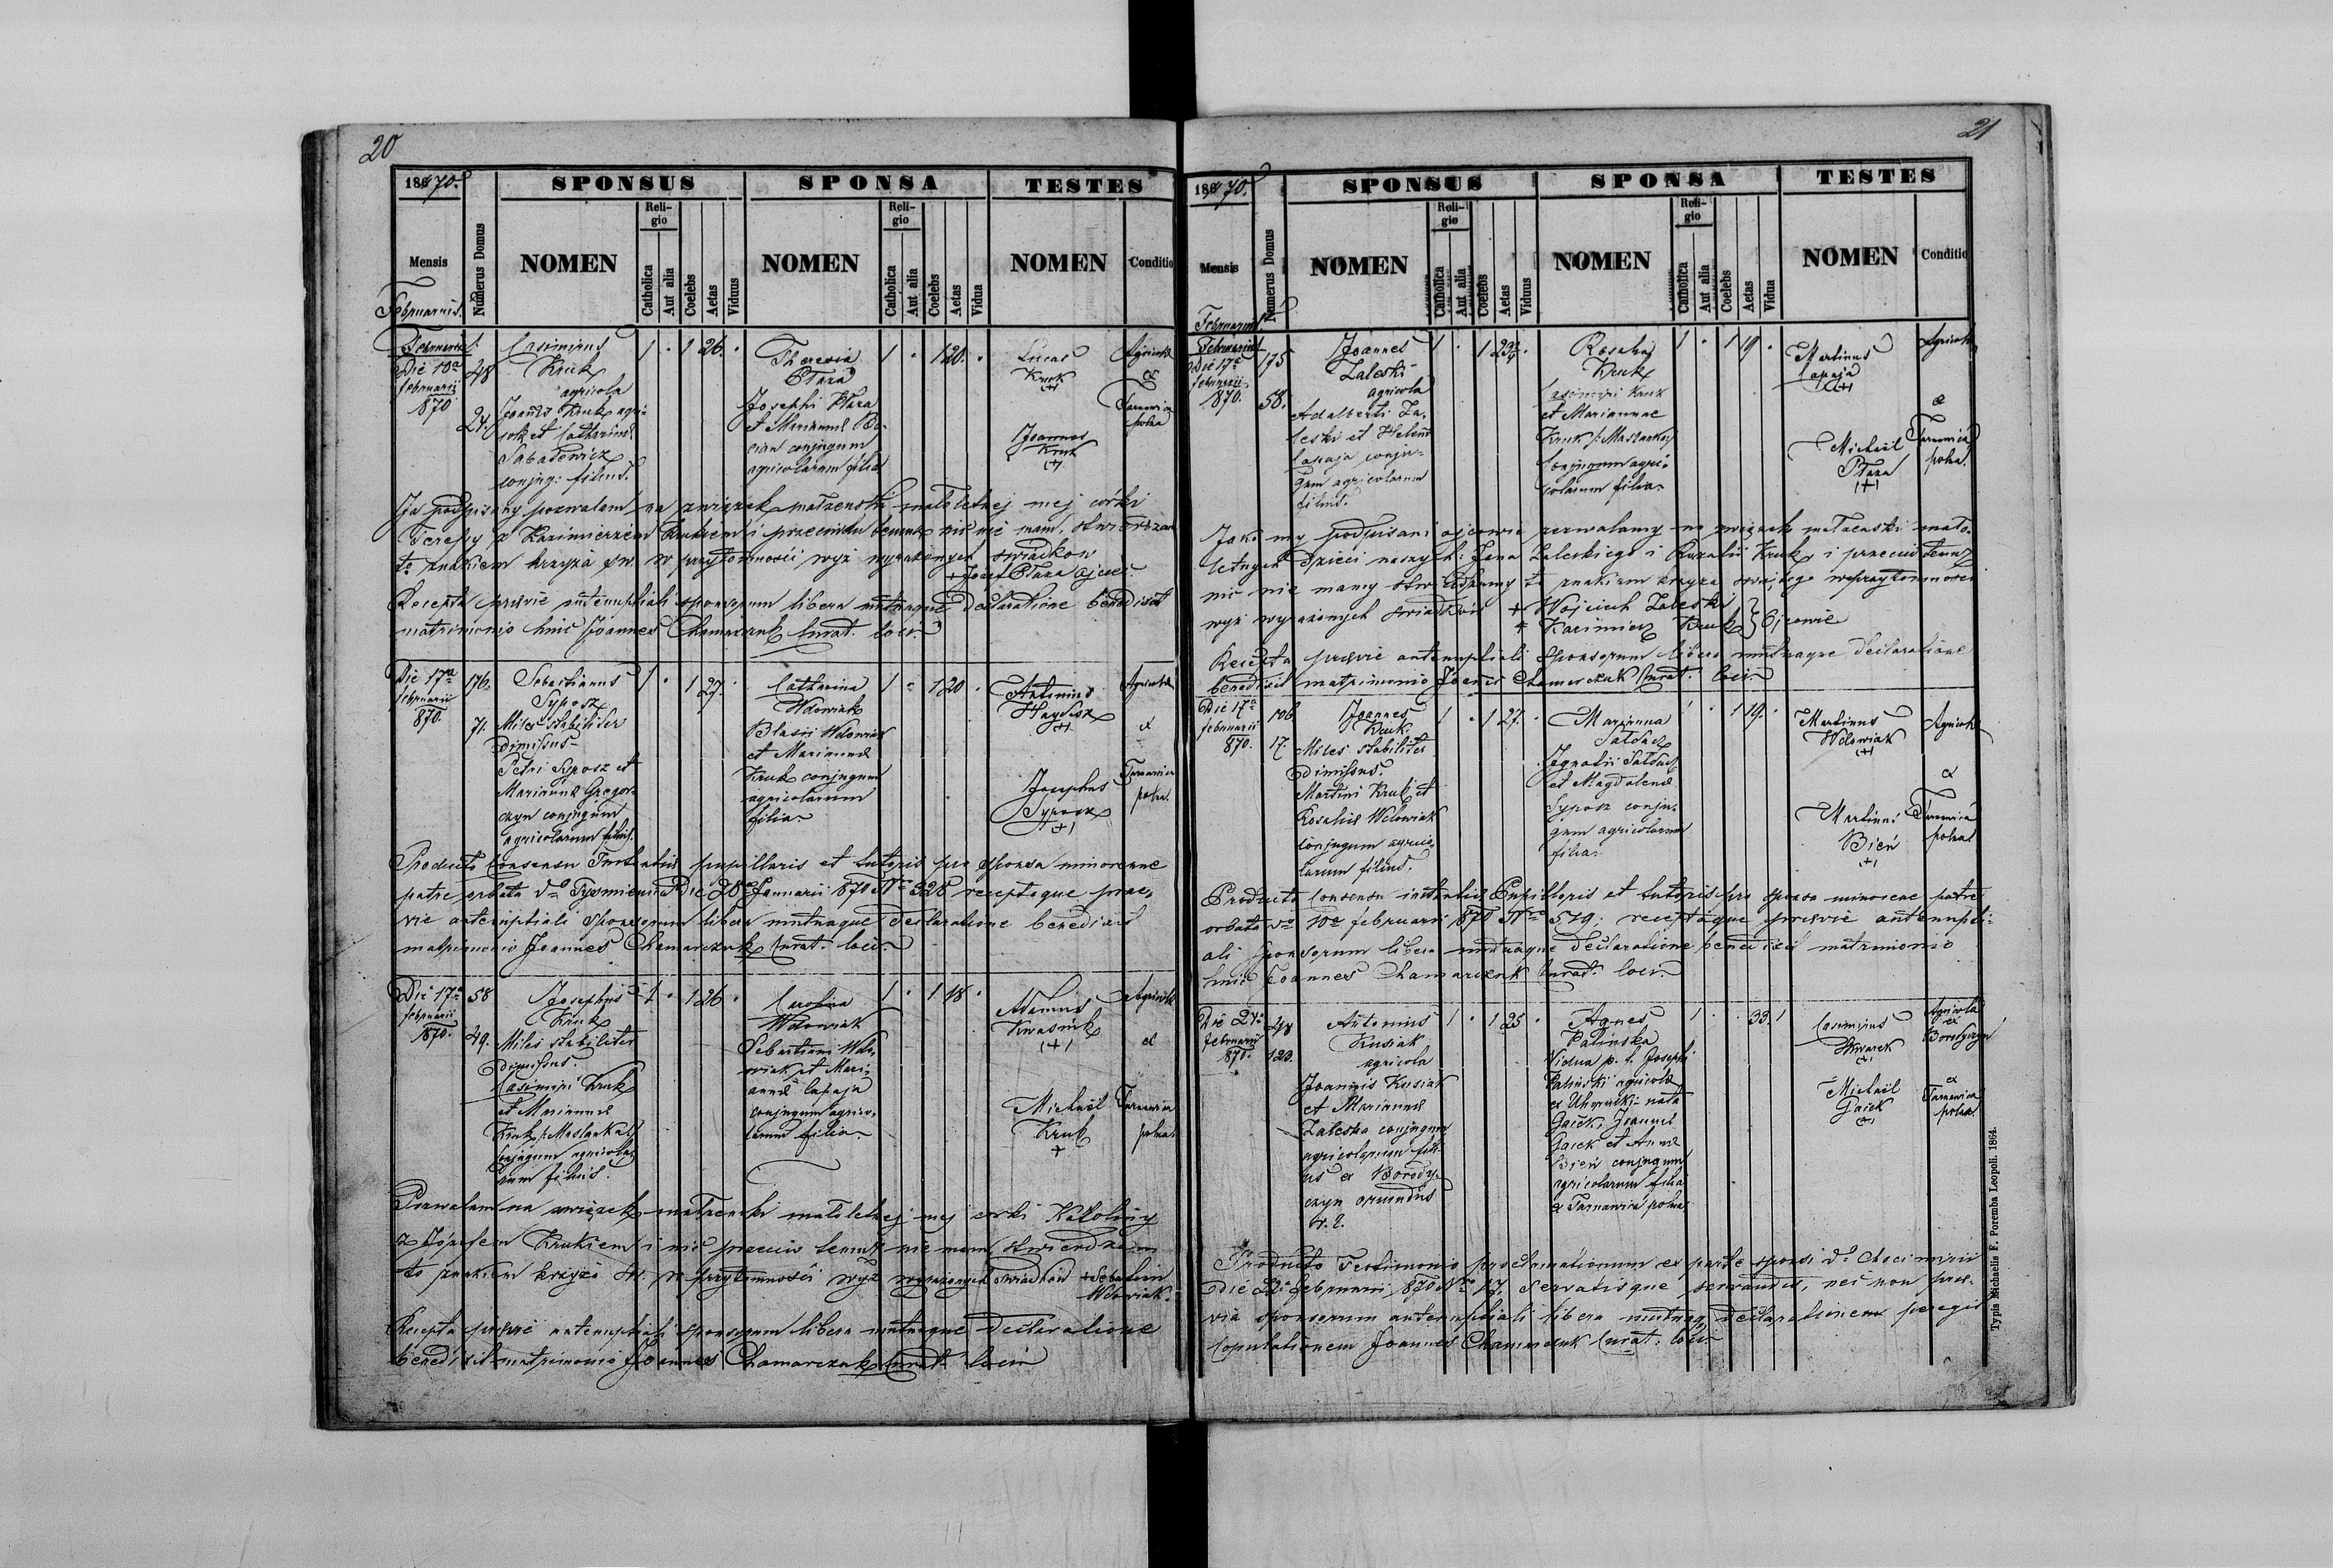 20
1870.
SPONSUS
SPONSA
TESTES
Mensis
Februarius.
Numerus Domus
NOMEN
Religio
Catholica
Aut alia
Coelebs
Aetas
Viduus
NOMEN
Religio
Catholica
Aut alia
Coelebs
Aetas
Vidua
NOMEN
Conditio
Die 10a
februarii
870
48
24.
Casimirus
Kruk
agricola
Joannis Kruk agri-
colae et Catharinae
conjug: filius.
1 . 1 26. .
Theresia
Ptaza
Josephi Ptaza
et Mariannae
conjugum
agricolarum filia
1 . 1 20. .
Lucas
Kruk
+
Joannes
Kruk
+
Agricolae
ex
Tarnawica
polna
Ja podpisany pozwalam na związek małżeński małoletniej mej córki
Teresy z Kazimierzem Krukiem i przeciw temu nic nie mam, stwierdzam
to znakiem krzyża św. w przytomności wyż wyrażonych świadków
+ Józef Ptaza ojciec.
Recepta praevie antenuptiali sponsorum libera mutuaque declaratione benedixit
matrimonio huic Joannes Chamarczuk Curat. loci.
Die 17a
februarii
870.
176.
71.
Sebastianus
Syposz
Miles stabiliter
dimissus
Petri Syposz et
Mariannae Gregor-
czyn conjugum
agricolarum filius.
1 . 1 27. .
Catharina
Wdowiak
Blasii Wdowiak
et Mariannae
Kruk conjugum
agricolarum
filia.
1 . 1 20 .
Antonius
+
Josephus
Syposz
+
Agricolae
ex
Tarnawica
polna.
Producto consensu Instantiae pupillaris et tutoris pro sponsa minorenne
patre orbata do Tysmienica die 28a Januarii 870 Nro 328 receptaque prae-
vie antenuptiali sponsorum libera mutuaque declaratione benedixit
matrimonio Joannes Chamarczuk Curat. loci.
Die 17a
februarii
1870.
58
49.
Josephus
Kruk
Miles stabiliter
dimissus.
Casimiri Kruk
et Mariannae
Kruk /: Maslanka
conjugum agricola-
rum filius.
1 . 1 26 .
Carolina
Wdowiak
Sebastiani Wdo-
wiak et Mari-
annae Capaja
conjugum agrico-
larum filia.
1 . 1 18 .
Adamus
Kwasnik
+
Michaël
Kruk
+
Agricolae
ex
Tarnawica
polna
Pozwalam na związek małżeński małoletniej mej córki Karoliny
z Józefem Krukiem i nic przeciw temu nie mam, stwierdzam
to znakiem krzyża św. w przytomności wyż wyrażonych świadków + Sebastian
Wdowiak.
Recepta praevie antenuptiali sponsorum libera mutuaque declaratione
benedixit matrimonio Joannes Chamarczuk Curat. loci
21
1870.
SPONSUS
SPONSA
TESTES
Mensis
Februarius
Numerus Domus
NOMEN
Religio
Catholica
Aut alia
Coelebs
Aetas
Viduus
NOMEN
Religio
Catholica
Aut alia
Coelebs
Aetas
Vidua
NOMEN
Conditio
Die 17a
februarii
1870.
175
58.
Joannes
Zaleski
agricola
Adalberti Za-
leski et Helenae
Capaja conju-
gum agricolarum
filius.
Rosalia
Kruk
Casimiri Kruk
et Mariannae
Kruk /: Maslanka
conjugum agri-
colarum filia.
1 . 1 19 .
Martinus
Capaja
+
Michaël
Ptaza
+
Agricolae
ex
Tarnawica
polna.
Jako my podpisani ojcowie zezwalamy na związek małżeński mało-
letnych dzieci naszych: Jana Zaleskiego i Rozalii Kruk i przeciw temu
nic nie mamy stwierdzamy to znakiem krzyża świętego w przytomności
wyż wyrażonych świadków + Wojciech Zaleski
+ Kazimierz Kruk } Ojcowie
Recepta praevie antenuptiali sponsorum libera mutuaque declaratione
benedixit matrimonio Joannes Chamarczuk Curat. loci
Die 17a
februarii
870.
106
17.
Joannes
Kruk
Miles stabiliter
dimissus.
Martini Kruk et
Rosaliae Wdowiak
conjugum agrico-
larum filius.
1 . 1 27. .
Marianna
Ignatii
et Magdalenae
Syposz conju-
gum agricolarum
filia.
1 19.
Martinus
Wdowiak
+
Martinus
Bień
+
Agricolae
ex
Tarnawica
polna
Producto consensu instantiae Pupillaris et tutoris pro sponsa minorene patre
orbata do 10a februarii 870 Nro 579; receptaque praevie antenupti-
ali sponsorum libera mutuaque declaratione benedixit matrimonio
huic Joannes Chamarczuk Curat. loci.
Die 24a
februarii
870.
48
120.
Antonius
Kusiak
agricola
Joannis Kusiak
et Mariannae
Zaleska conjugum
agricolarum fili-
us ex Borody-
czyn oriundus
1 . 1 25 .
Agnes
Palinska
Vidua p. d. Josephi
Palinski agricolae
nata
Gaick, Joannis
Gaick et Annae
Bień conjugum
agricolarum filia
ex Tarnawica polna
1 . . 33. 1
Casimirus
+
Michaël
Gaick
+
Agricola
ex
ex
Tarnawica
polna
Producto Testimonio proclamationum ex parte sponsi do Chocimirz
die 22a februarii 870 Nro 17, servatisque servandis, nec non prae-
via sponsorum antenuptiali libera mutuaq. declaratione peregit
copulationem Joannes Chamarczuk Curat. loci
Typis Michaelis F. Poremba Leopoli. 1864.